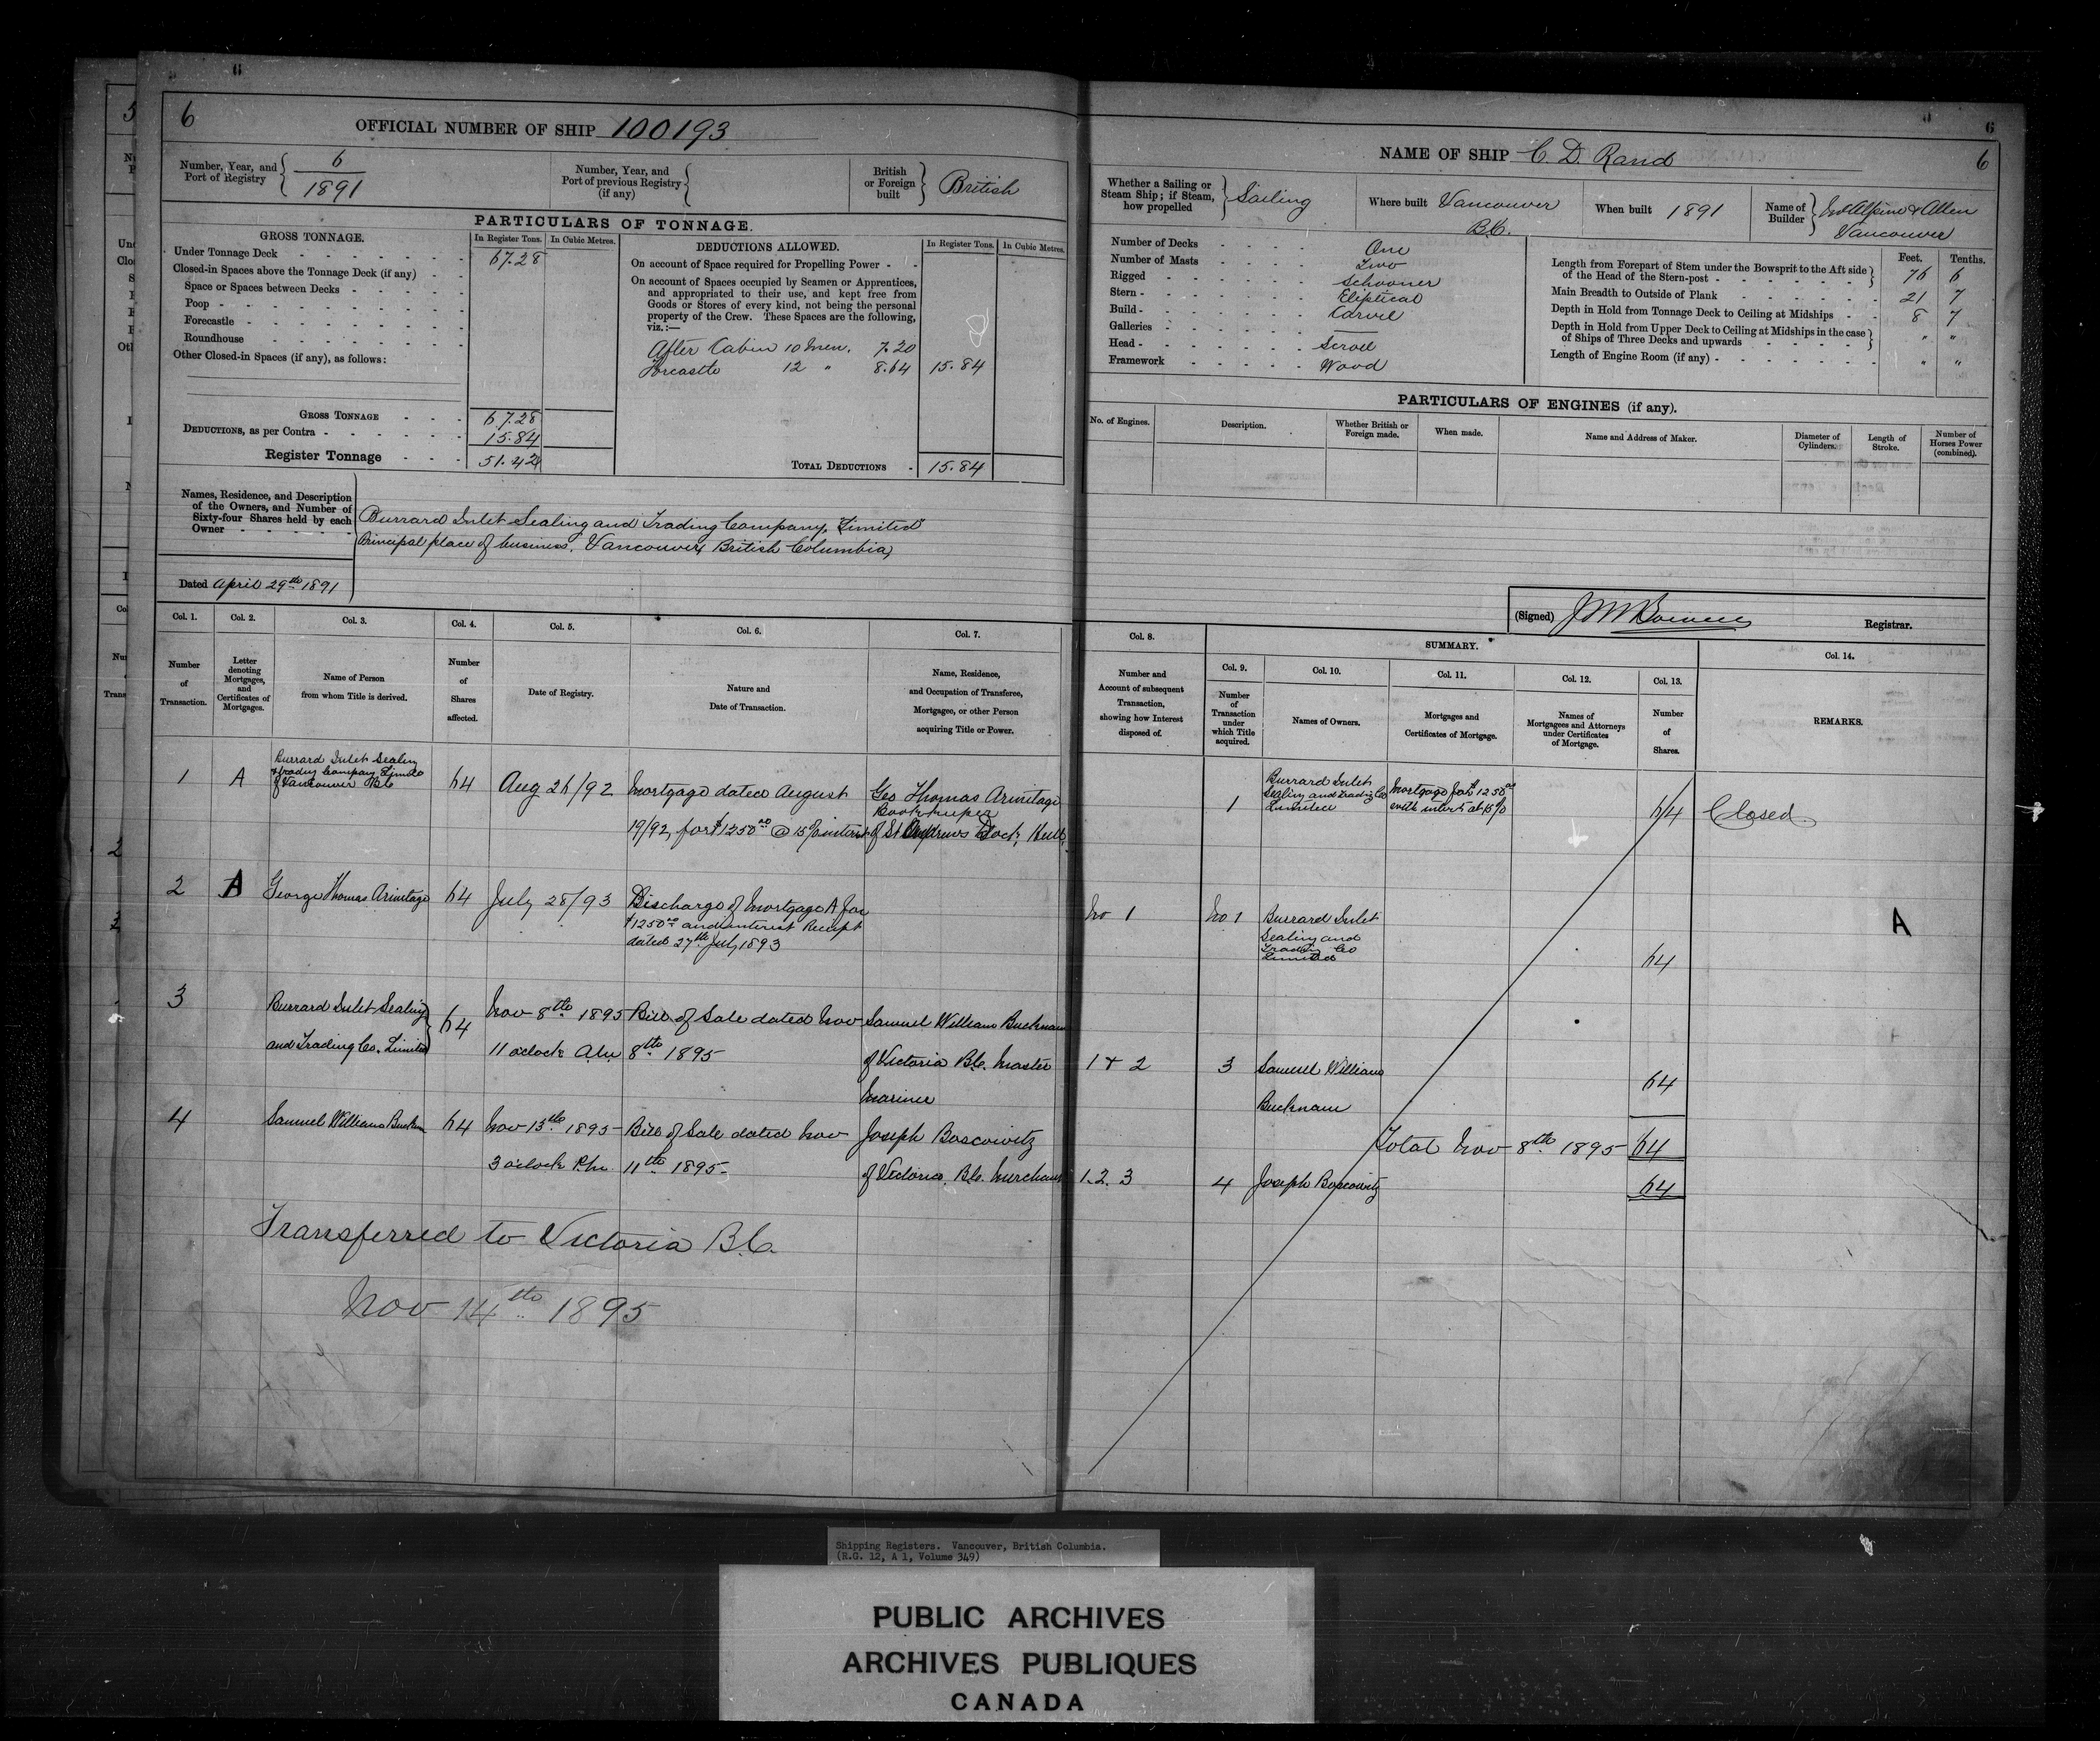 6
OFFICIAL NUMBER OF SHIP 100193
Number, Year, and Port of Registry 6 / 1891
Number, Year, and Port of previous Registry (if any)
British or Foreign built British
PARTICULARS OF TONNAGE.
GROSS TONNAGE.
In Register Tons. In Cubic Metres.
Under Tonnage Deck 67.28
Closed-in Spaces above the Tonnage Deck (if any)
Space or Spaces between Decks
Poop
Forecastle
Roundhouse
Other Closed-in Spaces (if any), as follows:
GROSS TONNAGE 67.28
DEDUCTIONS, as per Contra 15.84
Register Tonnage 51.42
DEDUCTIONS ALLOWED.
In Register Tons. In Cubic Metres.
On account of Space required for Propelling Power
On account of Spaces occupied by Seamen or Apprentices,
and appropriated to their use, and kept free from
Goods or Stores of every kind, not being the personal
property of the Crew. These Spaces are the following,
viz.:—
After Cabin 10 men. 7.20
Forcastle 12 " 8.64 15.84
TOTAL DEDUCTIONS 15.84
Names, Residence, and Description
of the Owners, and Number of
Sixty-four Shares held by each
Owner
Burrard Inlet Sealing and Trading Company, Limited
Principal place of business, Vancouver, British Columbia
Dated April 29th 1891
6
NAME OF SHIP C D Rand 6
Whether a Sailing or Steam Ship; if Steam, how propelled Sailing
Where built Vancouver B.C.
When built 1891
Name of Builder McAlpine & Allen Vancouver
Number of Decks One
Number of Masts Two
Rigged Schooner
Stern Eliptical
Build Carvel
Galleries —
Head Scroll
Framework Wood
Feet. Tenths.
Length from Forepart of Stem under the Bowsprit to the Aft side
of the Head of the Stern-post 76 6
Main Breadth to Outside of Plank 21 7
Depth in Hold from Tonnage Deck to Ceiling at Midships 8 7
Depth in Hold from Upper Deck to Ceiling at Midships in the case
of Ships of Three Decks and upwards " "
Length of Engine Room (if any) " "
PARTICULARS OF ENGINES (if any).
No. of Engines. Description. Whether British or Foreign made. When made. Name and Address of Maker. Diameter of Cylinders. Length of Stroke. Number of Horses Power (combined).
(Signed) Registrar.
Col. 1. Col. 2. Col. 3. Col. 4. Col. 5. Col. 6. Col. 7.
Number of Transaction.
Letter denoting Mortgages, and Certificates of Mortgages.
Name of Person from whom Title is derived.
Number of Shares affected.
Date of Registry.
Nature and Date of Transaction.
Name, Residence, and Occupation of Transferee, Mortgagee, or other Person acquiring Title or Power.
Col. 8.
Number and Account of subsequent Transaction, showing how Interest disposed of.
SUMMARY.
Col. 9. Col. 10. Col. 11. Col. 12. Col. 13.
Number of Transaction under which Title acquired.
Names of Owners.
Mortgages and Certificates of Mortgage.
Names of Mortgagees and Attorneys under Certificates of Mortgage.
Number of Shares.
Col. 14.
REMARKS.
1 A Burrard Inlet Sealing & trading Company Limited of Vancouver B.C 64 Aug 26/92 Mortgage dated August 19/92, for $1250.00 @ 15% interest Geo Thomas Armitage Bookkeeper of St Andrews Dock, Hull
1 Burrard Inlet Sealing and trading Co Limited Mortgage for $1250.00 with interest at 15% 64 Closed
2 A George Thomas Armitage 64 July 28/93 Discharge of Mortgage A for $1250.00 and interest Receipt dated 27th July 1893
No 1 No 1 Burrard Inlet Sealing and Trading Co Limited 64 A
3 Burrard Inlet Sealing and Trading Co. Limited 64 Nov 8th 1895 11 oclock A.M Bill of Sale dated Nov 8th 1895 Samuel William Bucknam of Victoria B.C. Master Mariner
1 & 2 3 Samuel William Bucknam 64
4 Samuel William 64 Nov 13th 1895 3 oclock P.M. Bill of Sale dated Nov 11th 1895 Joseph Boscowitz of Victoria. B.C. Merchant
Total Nov 8th 1895 64
1.2.3 4 Joseph Boscowitz 64
Transferred to Victoria B.C.
Nov 14th 1895
Shipping Registers. Vancouver, British Columbia.
(R.G. 12, A 1, Volume 349)
PUBLIC ARCHIVES
ARCHIVES PUBLIQUES
CANADA